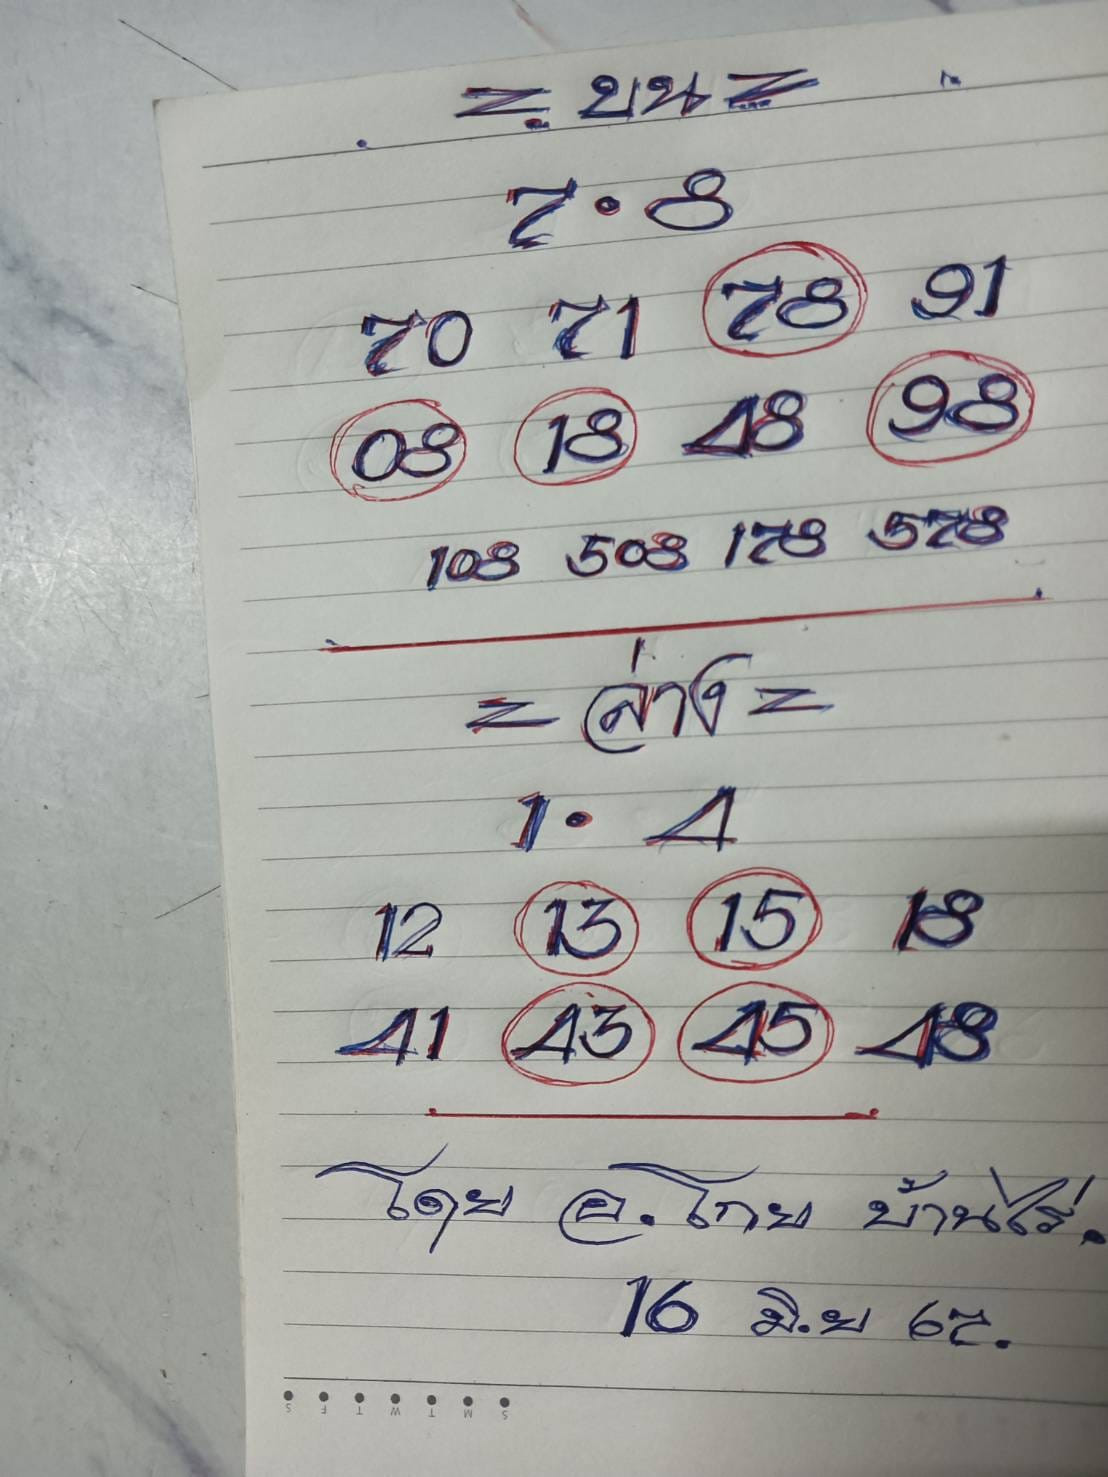 = บน =
7 • 8
70 71 78 91
08 18 48 98
108 508 178 578
= ล่าง =
1 • 4
12 13 15 18
41 43 45 48
โดย อ. โกย บ้านไร่.
16 มิ.ย 67.
S F T W T M S